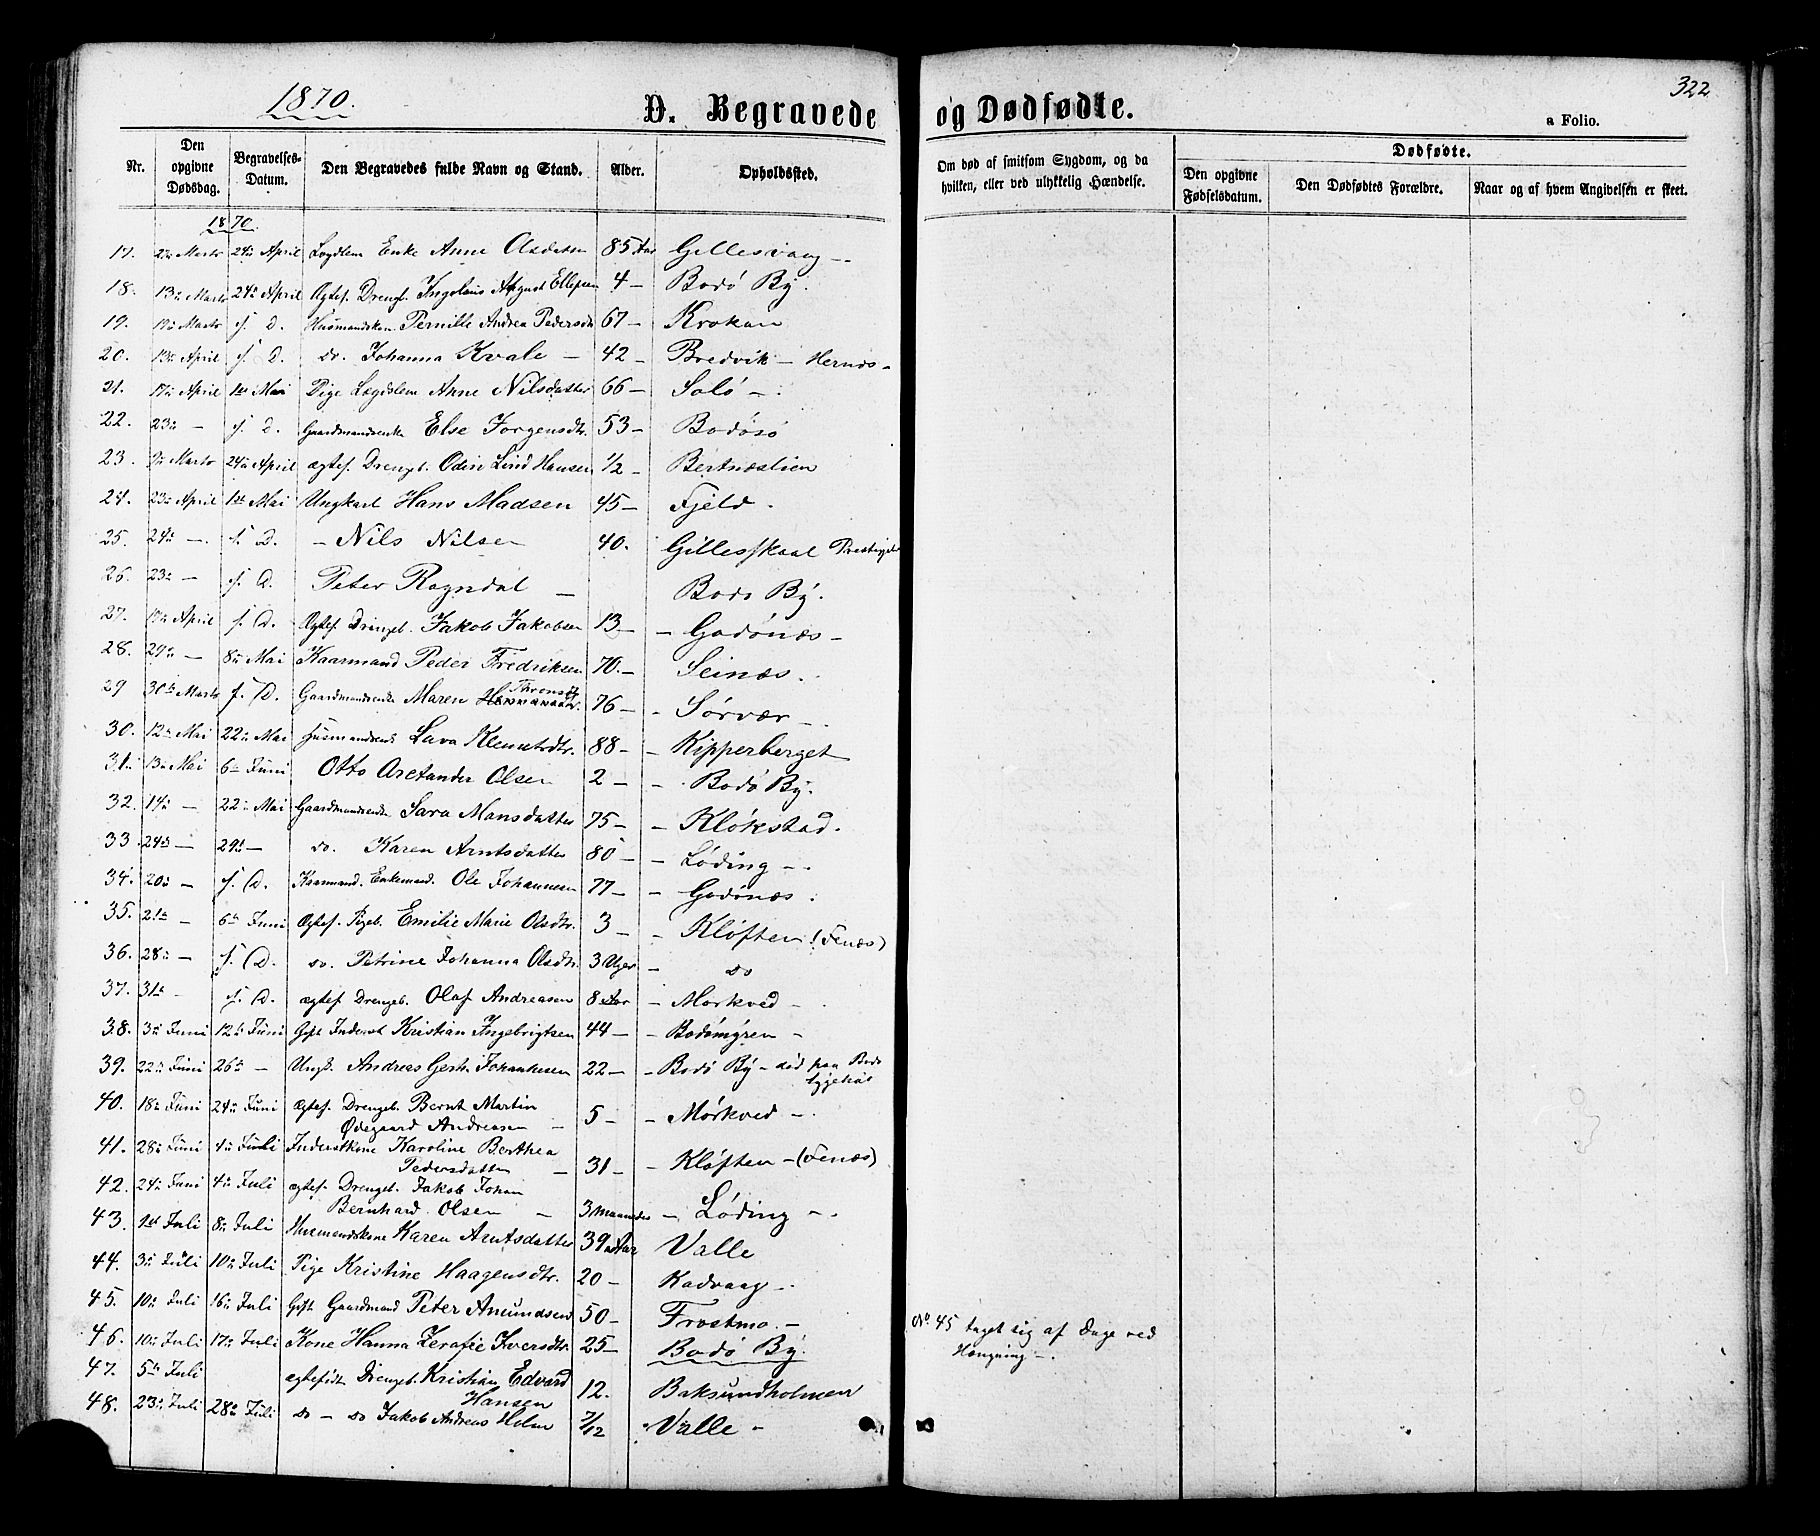 1870.
D. Begravede og Dødfødte.
322
a Folio.
Nr.
Den opgivne Dødsdag.
Begravelses-Datum.
Den Begravedes fulde Navn og Stand.
Alder.
Opholdssted.
Om død af smitsom Sygdom, og da hvilken, eller ved ulykkelig Hændelse.
Dødfødte.
Den opgivne Fødselsdatum.
Den Dødfødtes Forældre.
Naar og af hvem Angivelsen er skeet.
1870.
17. Marts 24de April Lægdslem Enke Anne Olsdatter 85 Aar Gillesvaag -
18. 13de Marts 24de April Ægtef. Drengb. August Ellefsen 4 - Bodø By.
19. 19de Marts s. D. Husmandskone Pernille Andrea Pedersdr 67 - Krokan
20. 13de April s. D. do. Johanna Kvale - 42 - Bredvik - Hernes -
21. 17de April 1ste Mai Pige Lægdslem Anne Nilsdatter 66 - Salø -
22. 23de - s. D. Gaardmandsenke Else Jørgensdtr. 53 - Bodøsø
23. 9de Marts 24de April ægtef. Drengb. Odin Lind Hansen 1/2 - Bertnæslien
24. 23de April 1ste Mai Ungkarl Hans Madsen 45 - Fjeld.
25. 24de - s. D. - Nils Nilsen 40. Gilleskaal Prestegjeld
26. 23de - s. D. Peter Rogndal - Bodø By.
27. 17de April s. D. Ægtef. Drengeb. Jakob Jakobsen 13 - Godønæs -
28. 29de - 8de Mai Kaarmand Peder Fredriksen 70. - Seinæs.
29 30te Marts s. D. Gaardmandsenke Maren 76 - Sørvær -
30. 12te Mai 22de Mai Husmandsenke Lava Klemetsdtr. 88 - Kipperberget
31. 13de Mai 6te Juni Otto Aretander Olsen 2 - Bodø By.
32. 14de - 22de Mai Gaardmandsenke Sara Mansdatter 75 - Kløkstad.
33. 24de - 29de - do. Karen Arntsdatter 80 - Løding -
34. 20de - s. D. Kaarmand. Enkemand. Ole Johannesen 77 - Godønæs
35. 21de - 6te Juni Ægtef. Pigeb. Emilie Marie Olsdtr. 3 - Kløften (Fenæs)
36. 28de - s. D. do. Petrine Johanna Olsdtr. 3 Uger - do
37. 31te - s. D. ægtef. Drengeb. Olaf Andreasen 8 Aar - Mørkved -
38. 3die Juni 12te Juni Gift Inderst Kristian Ingebrigtsen 44 - Bodømyren -
39. 22de Juni 26de - Ungk. Andreas Gerh. Johannesen 22 - Bodø By - død paa Bodø
Sygehus
40. 18de Juni 24de Juni Ægtef. Drengeb. Bernt Martin
Ødegaard Andreasen - 5 - Mørkved -
41. 28de Juni 4de Juli Inderstkone Karoline Berthea
Pedersdatter - 31 - Kløften - (Fenæs)
42. 24de Juni 4de Juli ægtef. Drengeb. Jakob Johan
Bernhard Olsen - 3 maaneder - Løding -
43. 1ste Juli 8de Juli Husmandskone Karen Arntsdatter 39 Aar Valle
44. 3die Juli 10de Juli Pige Kristine Haagensdtr. 20 - Kadvaag -
45. 10de Juli 16de Juli Gift Gaardmand Peter Amundsen 50 - Frostmo. -
No. 45 taget sig af Dage ved
Hængning -
46. 10de Juli 17de Juli Kone Hanna Zerafie Iversdtr. 25 - Bodø By.
47. 5te Juli ægtefødt Drengeb. Kristian Edvard
Hansen 12. Baksundholmen
48. 23de Juli 28de Juli do - do Jakob Andreas Holm 7/12 Valle -